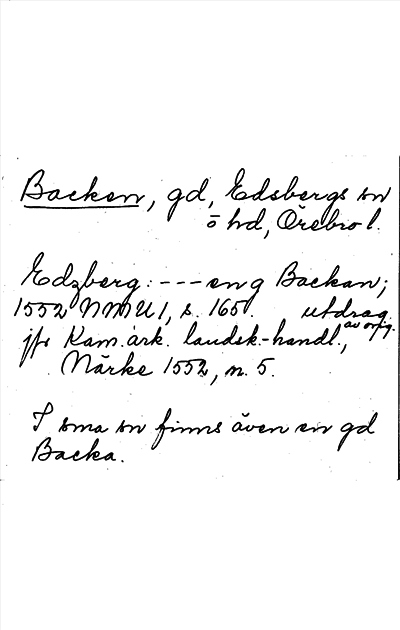 Backen, gd, Edsbergs sn
ö hd, Örebro l.
Edzberg: --- en g Backan;
1552 NMU 1, s. 165. utdrag
av orig.
jfr Kam. ark. landsk.-handl.,
Närke 1552, n. 5.
I sma sn finns även en gd
Backa.